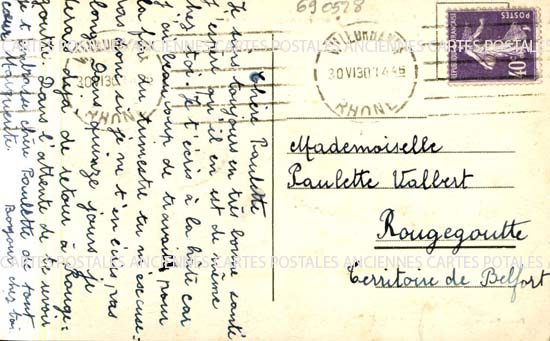 690528
VILLEURBANNE
30 VI 30 14 45
RHÔNE
POSTES
RÉPUBLIQUE FRANÇAISE
40c
CARTES POSTALES ANCIENNES CARTES POSTALES ANCIENNES CARTES POSTALES
Chère Paulette
Je suis toujours en très bonne santé
j'espère qu'il en est de même
chez toi. Je t'écris à la hâte car
j'ai beaucoup de travail pour
la fin du trimestre tu m'excuse-
ras donc si je ne t'en écris pas
long. Dans quinze jours je
serai déjà de retour à Rouge-
goutte. Dans l'attente de te revoir
je t'embrasse chère Paulette de tout
cœur Marguerite. Bonjour chez toi
Mademoiselle
Paulette Valbert
Rougegoutte
Territoire de Belfort